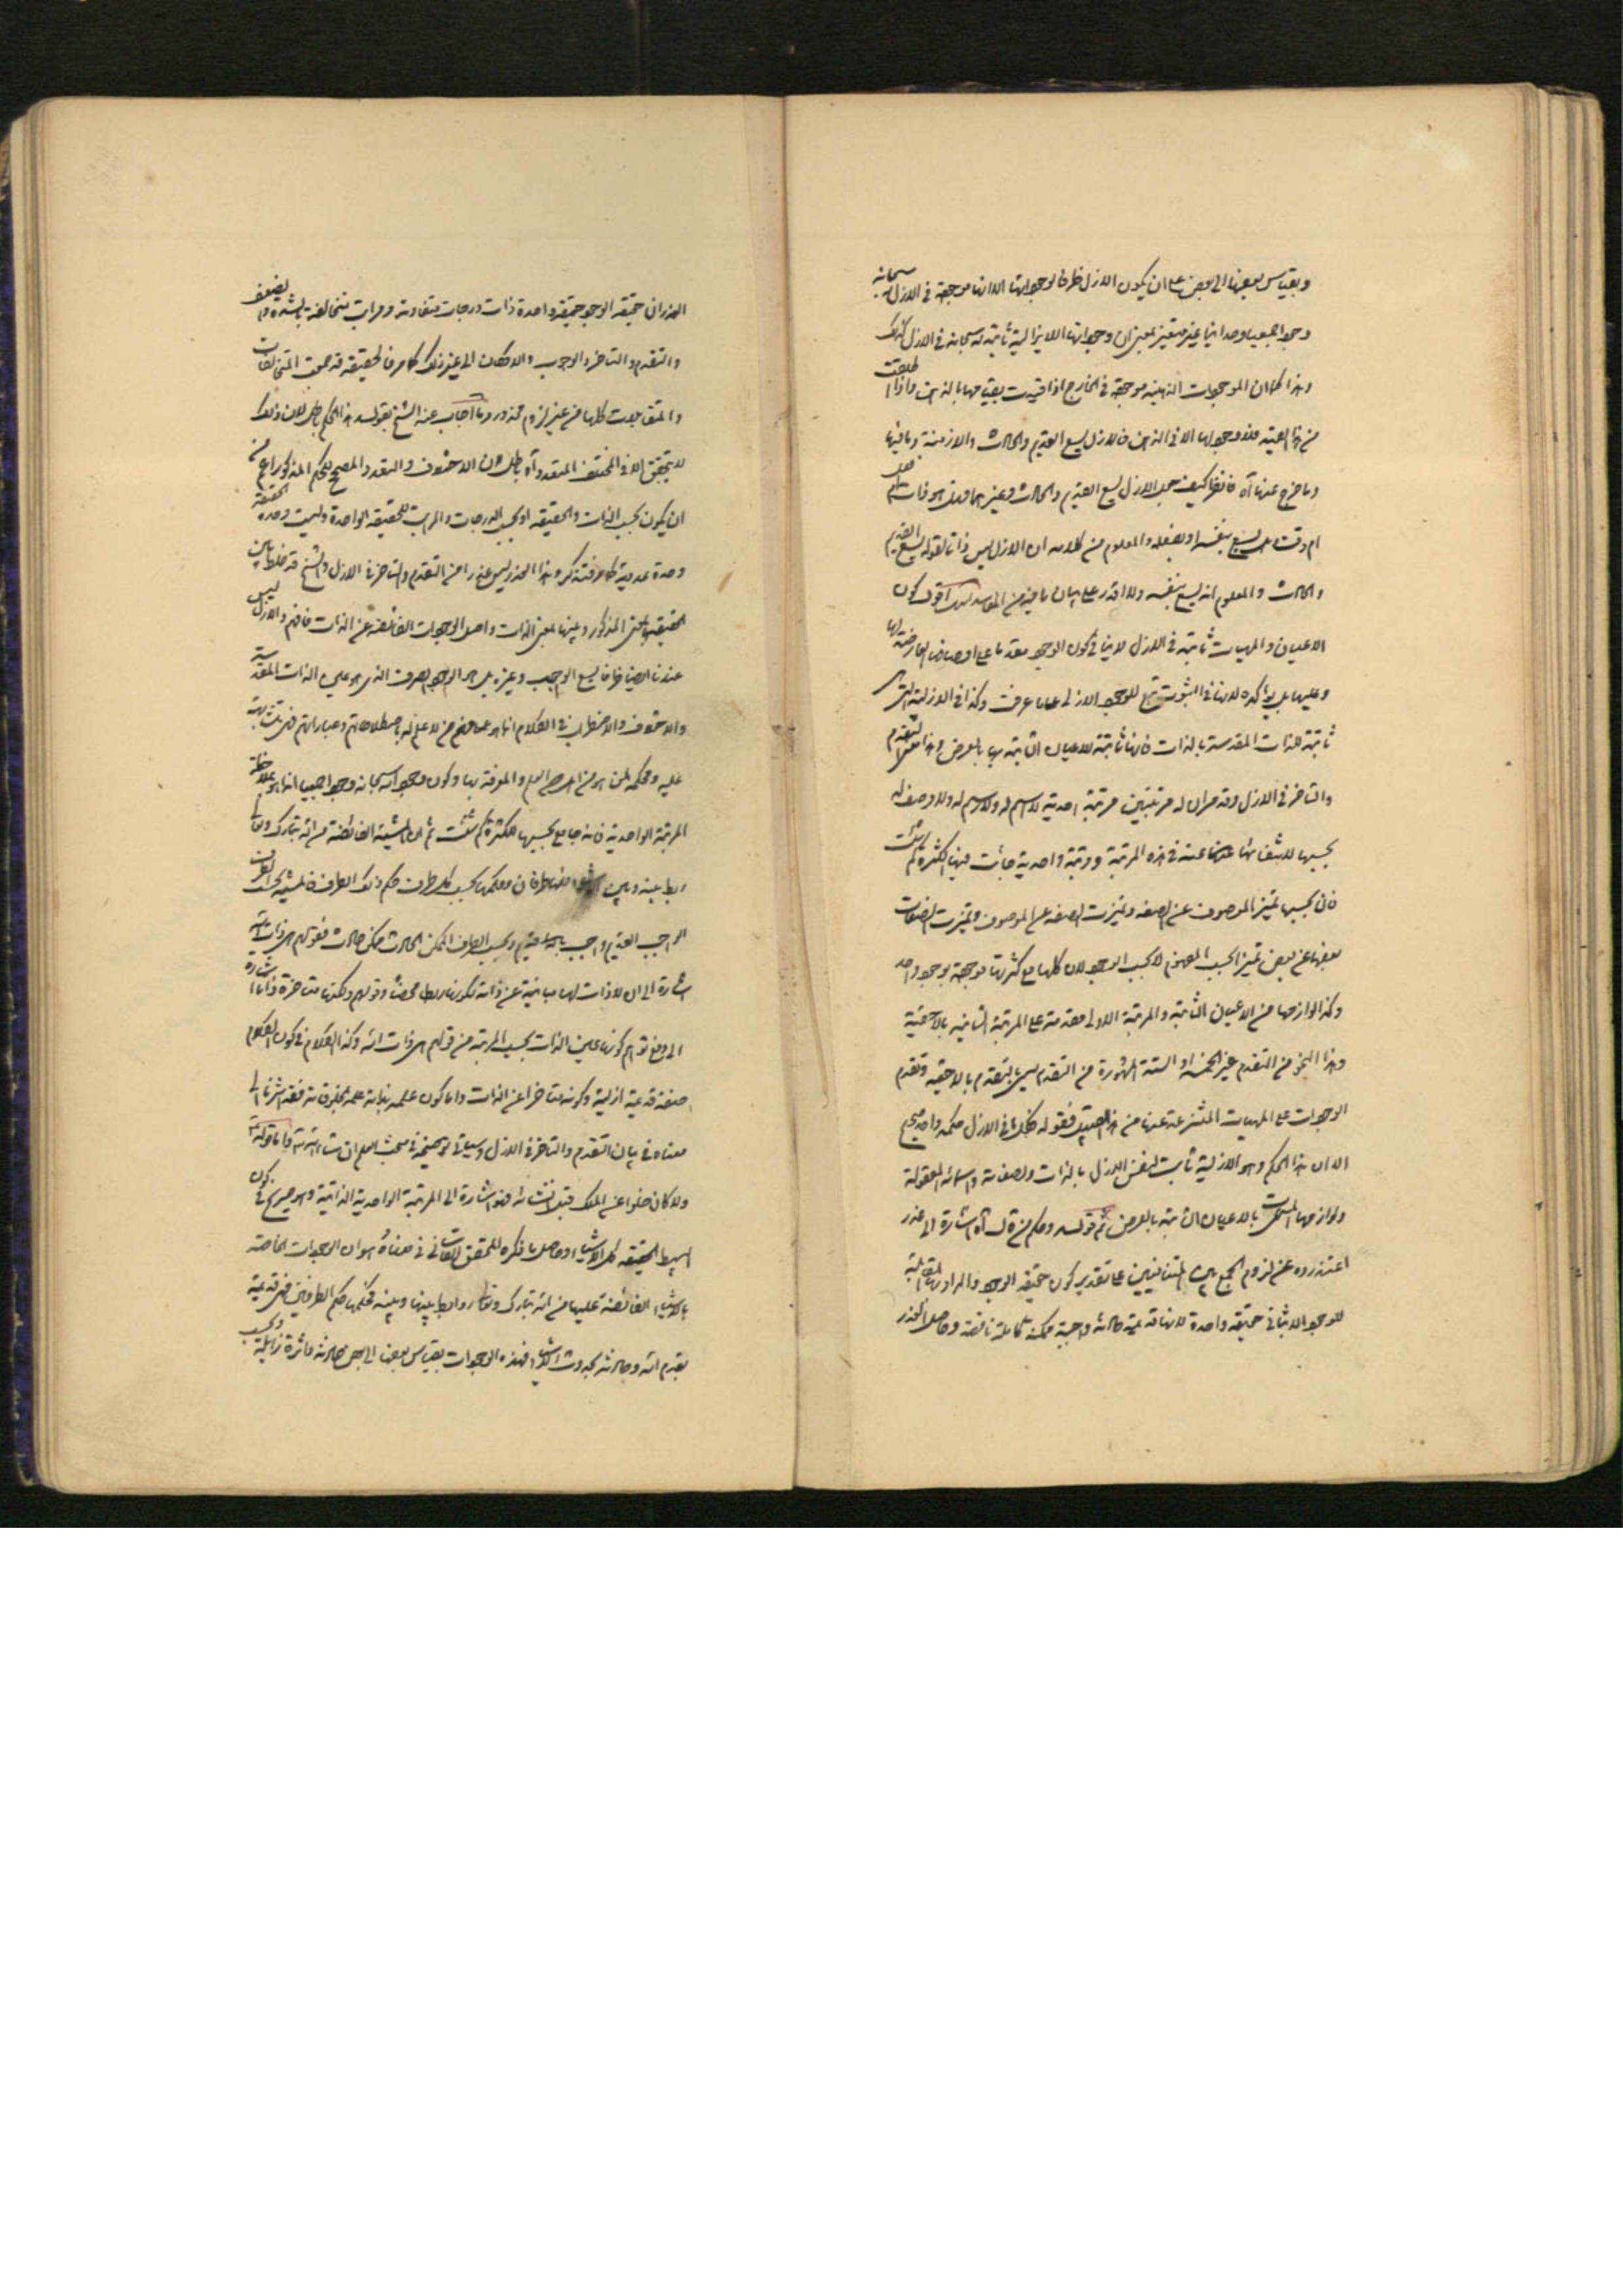 وبقياس بعضها الى بعض على ان يكون الازل ظرفا لوجوداتها الا انها موجودة فى الازل لله سبحانه
وجودا جمعيا وحدانيا غير متغير بمعنى ان وجوداتها اللايزالية ثابتة له سبحانه فى الازل كذلك
وهذا كما ان الموجودات الذهنية موجودة فى الخارج اذا قيدت بقيامها بالذهن واذا اطلقت
من هذا القيد فلا وجود لها الا فى الذهن فالازل يسع القديم والحادث والازمنة وما فيها
وما خرج عنها آه فانظر كيف جعل الازل يسع القديم والحادث وغيرهما فهل هو ذات الله
ام وقت هل يسع بنفسه او بفعله والمعلوم من كلامه ان الازل ليس ذاتا لقوله يسع القديم
والحادث والمعلوم انه يسع بنفسه ولا اقدر على بيان ما فيه من المفاسد اقول كون
الاعيان والمهيات ثابتة فى الازل لا ينافى كون الوجود مقدما على اوصافه العارضة لها
وعليها بل يؤكده لانها فى الثبوت تبع للوجود الازلى على ما عرفت وكذا فى الازلية التى هى
ثابتة للذات المقدسة بالذات فانها ثابتة للاعيان الثابتة بها بالعرض وهذا معنى التقدم
والتاخر فى الازل وقد مر ان له مرتبتين مرتبة احدية لا اسم له ولا رسم له ولا وصف له
بحسبها للاشفائها عنه فى هذه المرتبة ومرتبة واحدية جائت فيها الكثرة كم شئت
فان بحسبها تميز الموصوف عن الصفة وتميزت الصفة عن الموصوف وتميزت الصفات
بعضها عن بعض تميزا بحسب المفهوم لا بحسب الوجود لان كلها مع كثرتها موجودة بوجود واحد
وكذا لوازمها من الاعيان الثابتة والمرتبة الاولى مقدمة على المرتبة الثانية بالاحقية
وهذا النحو من التقدم غير الخمسة او الستة المشهورة من التقدم يسمى بالتقدم بالاحقية وتقدم
الوجودات على المهيات المنتزعة عنها من هذا القبيل فقوله فكل ما فى الازل حكمه واحد صحيح
الا ان هذا الحكم وهو الازلية ثابت لنفس الازل بالذات ولصفاته واسمائه المعقولة
ولوازمها المسميات بالاعيان الثابتة بالعرض ثم قوله وحكم من قال آه اشارة الى عذر
اعتذروه عن لزوم الجمع بين المتنافيين على تقدير كون حقيقة الوجود والمراد بها المقابلة
للوجود الاثباتى حقيقة واحدة لانها قديمة حادثة واجبة ممكنة كاملة ناقصة وحاصل العذر
العذر ان حقيقة الوجود حقيقة واحدة ذات درجات متفاوتة ومراتب متخالفة بالشدة والضعف
والتقدم والتاخر والوجوب والامكان الى غير ذلك كما مر فالحقيقة قد جمعت المتخالفات
والمتقابلات كلها من غير لزوم محذور وما اجاب عنه الشيخ بقوله هذا الحكم باطل لان ذلك
لا يتحقق الا فى المختلف المتعدد آه باطل لان الاختلاف والتعدد المصحح للحكم المذكور اعم من
ان يكون بحسب الذات والحقيقة او بحسب الدرجات والمراتب للحقيقة الواحدة وليست وحدة الحقيقة
وحدة عددية كما عرفت فتذكر وهذا العذر ليس عذرا من التقدم والتاخر فى الازل والشيخ قد خلط بين
الحقيقة بالمعنى المذكور وبينها بمعنى الذات واصل الوجودات الفائضة عن الذات فافهم والازل ليس
عندنا ايضا ظرفا يسع الواجب وغيره بل هو الوجود الصرف الذى هو عين الذات المقدسة
والاختلاف والاضطراب فى الكلام انما هو على فهم من لا علم له باصطلاحاتهم وعباراتهم فهى متشابهة
عليه ومحكمة لمن هو من اهل العلم والمعرفة بها وكون وجوده سبحانه وجودا جمعيا انما هو بملاحظة
المرتبة الواحدية فانه جامع بحسبها للكثرة كم شئت ثم ان المشية الفائضة من الله تبارك وتعالى
رابط بينه وبين الاشياء فلها طرفان وحكمها بحسب كل طرف حكم ذلك الطرف فالمشية بحسب الطرف
الواجب القديم واجب قديم وبحسب الطرف الممكن الحادث ممكن حادث فقولهم هى ذات الله
اشارة الى ان لا ذات لها مباينة عن ذاته لكونها ربطا محضا وقولهم ولكنها متاخرة ذاتا اشارة
الى دفع توهم كونها عين الذات بحسب المرتبة من قولهم هى ذات الله وكذا الكلام فى كون الكلام
صفة قديمة ازلية وكونه متاخرا عن الذات واما كون علمه بذاته علمه بمخلوقاته فقد اشرنا الى
معناه فى بيان التقدم والتاخر فى الازل وسيأتى توضيحه فى مبحث العلم ان شاء الله تعالى واما قوله
ولا كان خلوا عن الملك قبل انشائه فهو اشارة الى المرتبة الواحدية الذاتية وهو صريح فى كون
بسيط الحقيقة كل الاشياء وحاصل ما ذكره المحقق القاسانى فى معناه هو ان الوجودات الخاصة
بالاشياء الفائضة عليها من الله تبارك وتعالى روابط بينها وبينه فحكمها حكم الطرفين فهى قديمة
بقدم الله وحادثة بحدوث الاشياء فهذه الوجودات بقياس بعضها الى بعض حادثة داثرة زائلة وبحسب